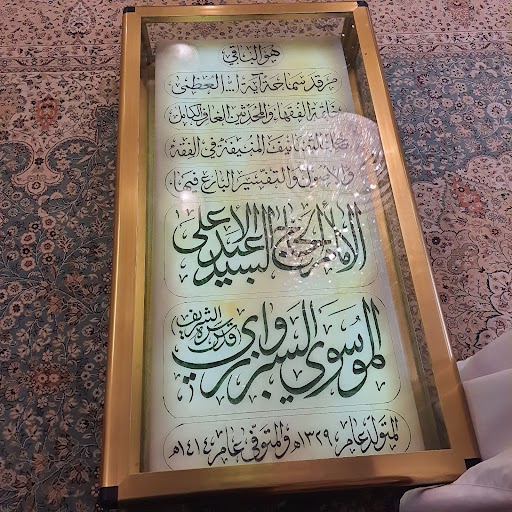 هو الباقي
مرقد سماحة آية ا... العظمى
خاتمة الفقهاء والمحدثين العارف الكامل
التآليف المنيفة في الفقه
والاصول والتفسير البارع فيها
الامام الحجة السيد عبد الاعلى
الموسوي السبزواري قدس سره الشريف
المتولد عام ١٣٢٩هـ والمتوفى عام ١٤١٤هـ